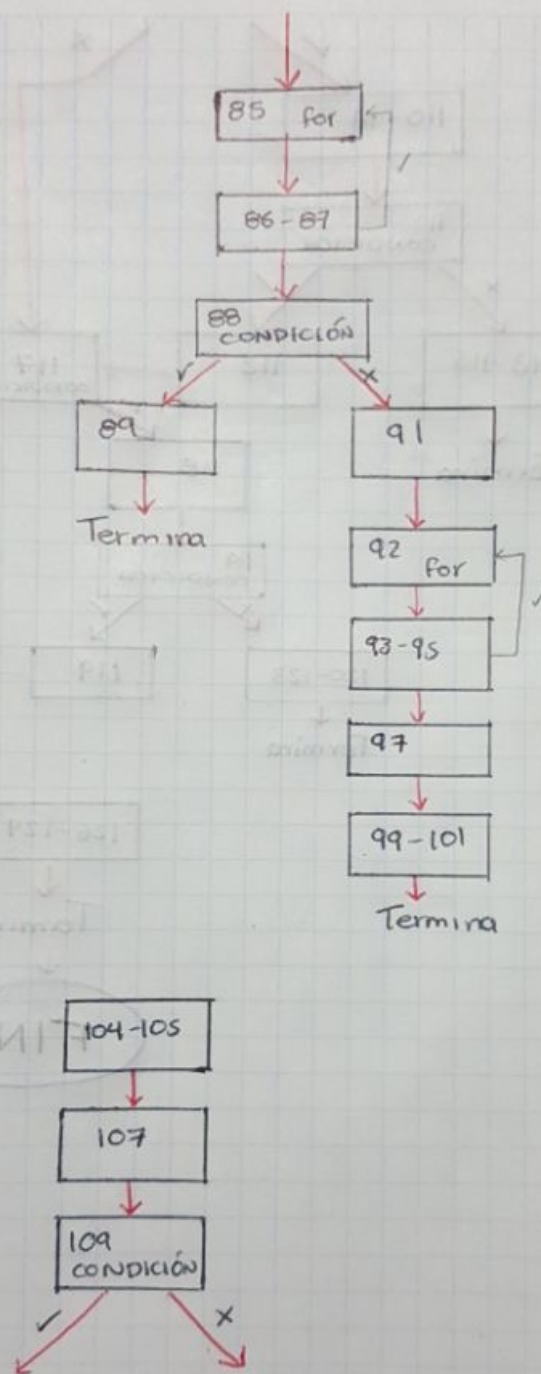 85 for
86-87
88
CONDICIÓN
✓ x
89
91
Termina
92
for
✓
93-95
97
99-101
Termina
104-105
107
109
CONDICIÓN
✓ x